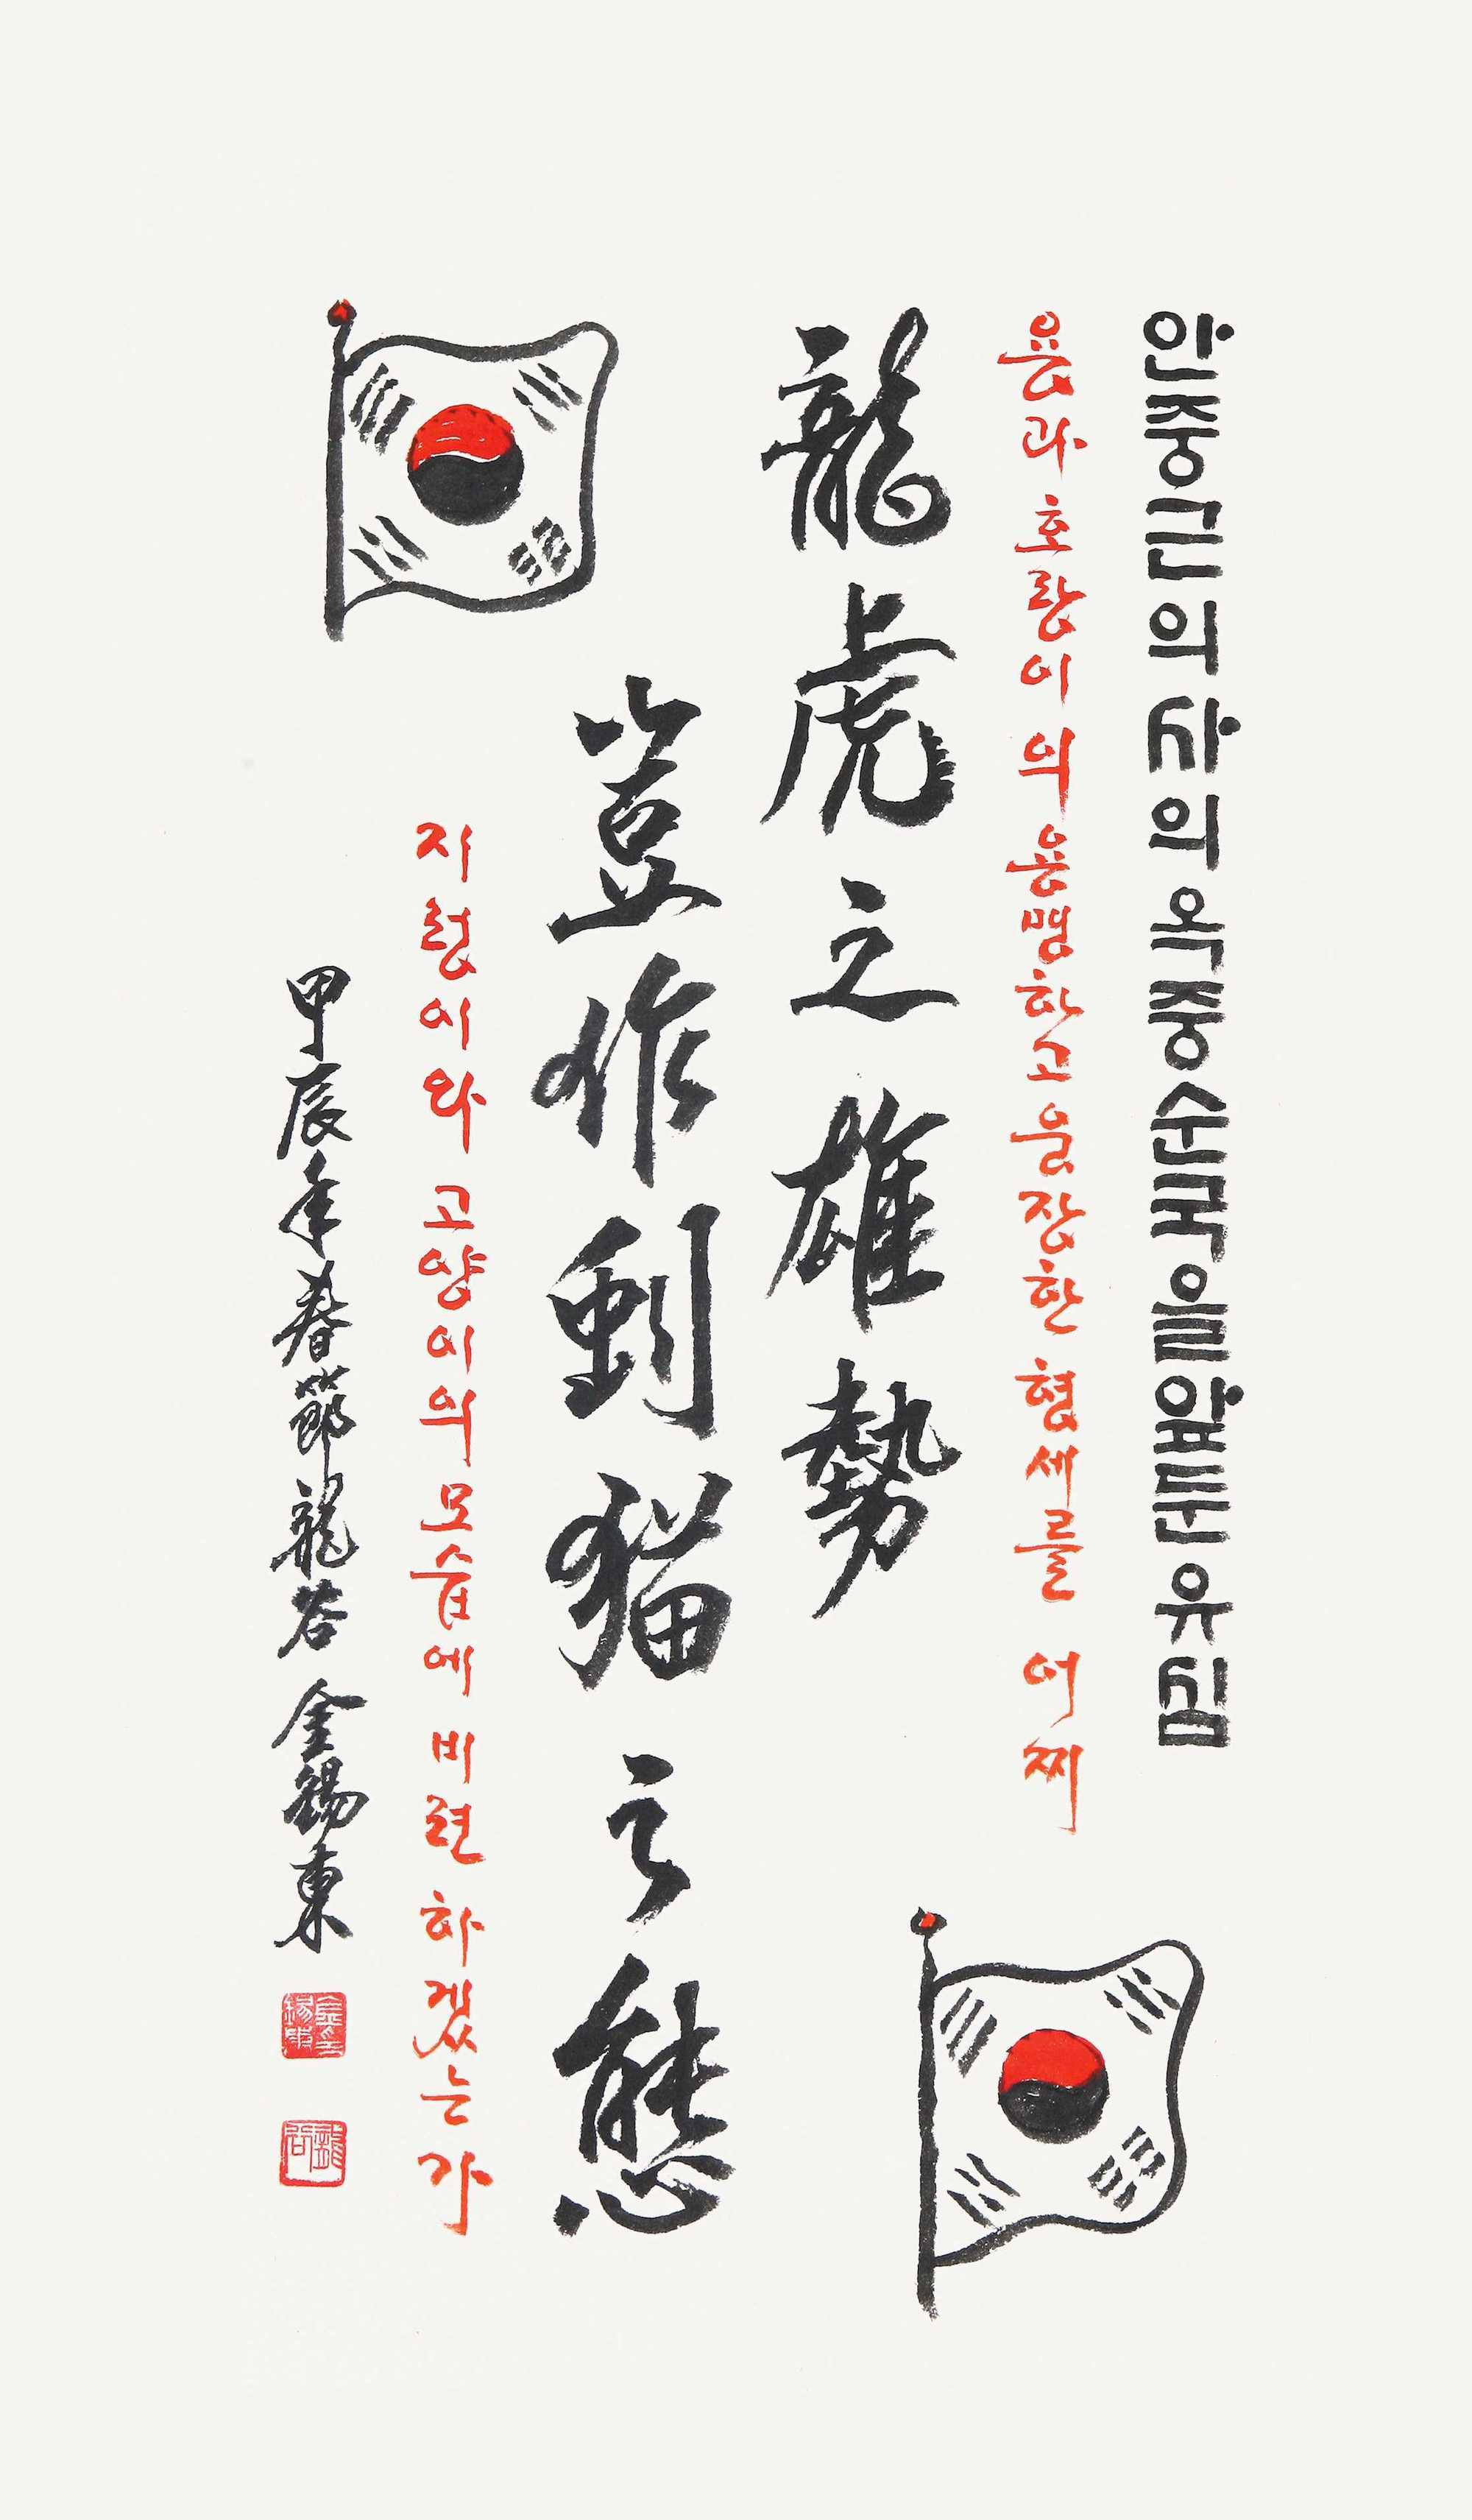 안중근의사의옥중순국을앞둔유심
용과 호랑이의 용맹하고 웅장한 형세를 어찌
龍虎之雄勢
豈作蚓猫之態
지렁이와 고양이의 모습에 비견 하겠는가
甲辰年春節龍谷 金錫東
龍谷